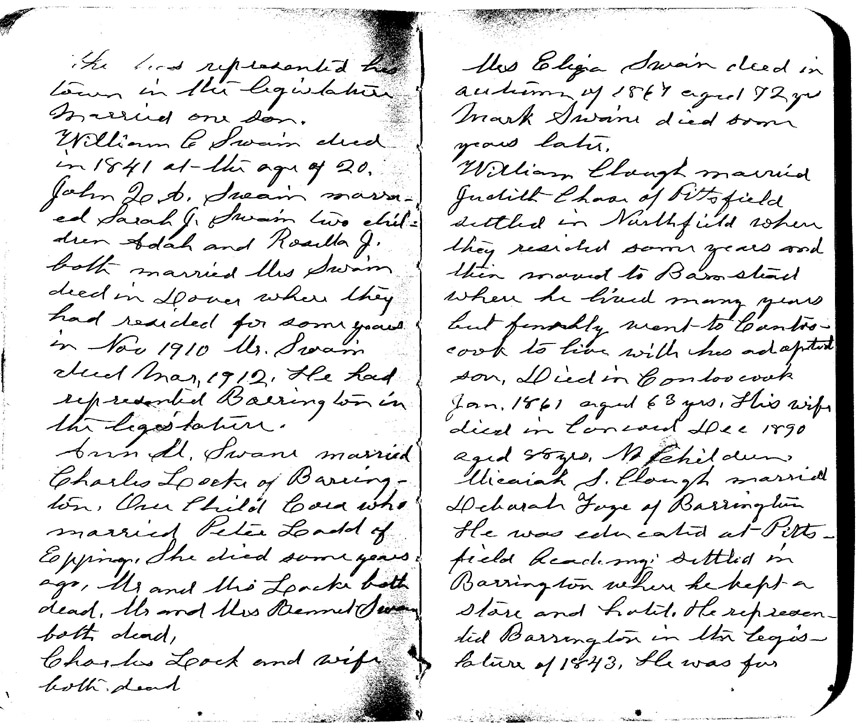 He has represented his
town in the legislature
Married one son.
William C Swain died
in 1841 at the age of 20.
John Q. A. Swain marri-
ed Sarah J. Swain two chil-
dren Adah and Rosilla J.
both married Mrs Swain
died in Dover where they
had resided for some years
in Nov 1910 Mr. Swain
died Mar, 1912. He had
represented Barrington in
the legislature.
Ann M. Swane married
Charles Locke of Barring-
ton. One Child Cora who
married Peter Ladd of
Epping. She died some years
ago, Mr and Mrs Locke both
dead. Mr and Mrs Bennet Swain
both dead,
Charles Lock and wife
both dead
Mrs Eliza Swain died in
autumn of 1867 aged 72 yr
Mark Swane died som
years late.
William Clough married
Judith Chase of Pittsfield
settled in Northfield where
they resided some years and
then moved to Barnstead
where he lived many years
but finally went to Contoo-
cook to live with his adapted
son, Died in Contoocook
Jan. 1861 aged 63 yrs. His wife
died in Concord Dec 1890
aged 88 yrs. No children
Micaiah S. Clough married
Deborah Foye of Barrington
He was educated at Pitts-
field Academy; settled in
Barrington where he kept a
store and hotel. He represen-
ted Barrington in the Legis-
lature of 1843. He was for